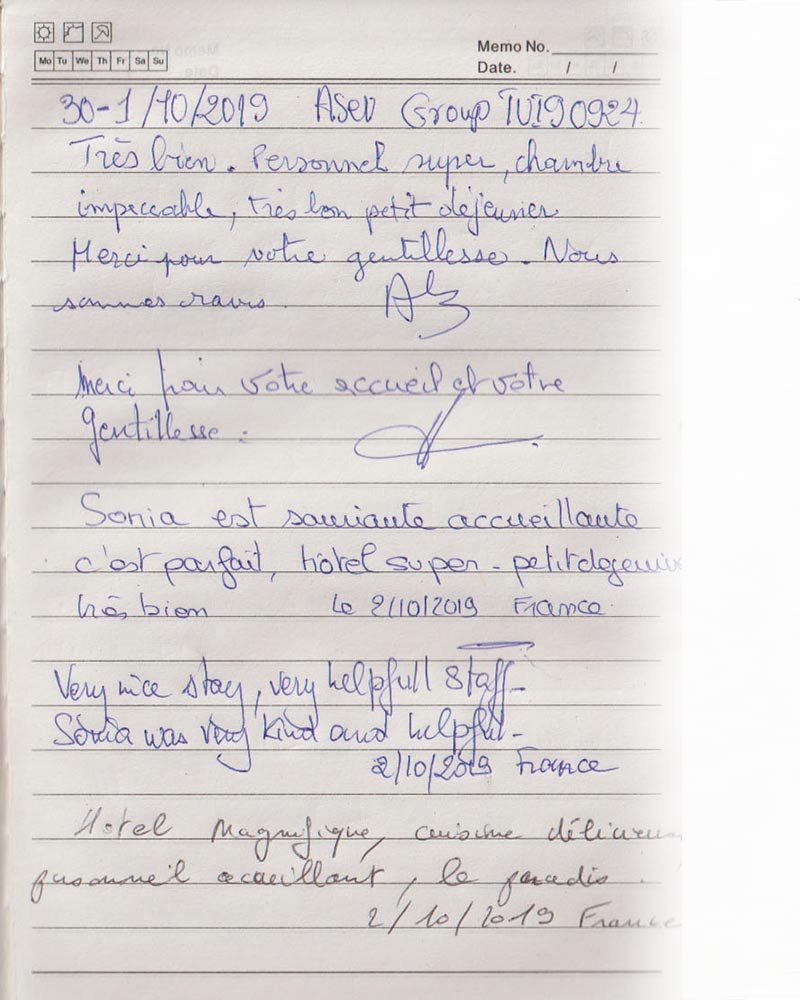 Mo Tu We Th Fr Sa Su
Memo No.
Date. / /
30-1/10/2019 Asev Group TUI90924
Très bien. Personnel super, chambre
impeccable, très bon petit déjeuner
Merci pour votre gentillesse. Nous
sommes ravis.
Merci pour votre accueil et votre
gentillesse.
Sonia est souriante accueillante
c'est parfait, hôtel super - petit
très bien Le 2/10/2019 France
Very nice stay, very helpfull staff -
Sonia was very kind and helpful -
2/10/2019 France
Hotel Magnifique, cuisine
personneil acueillant, le paradis.
2/10/2019 France